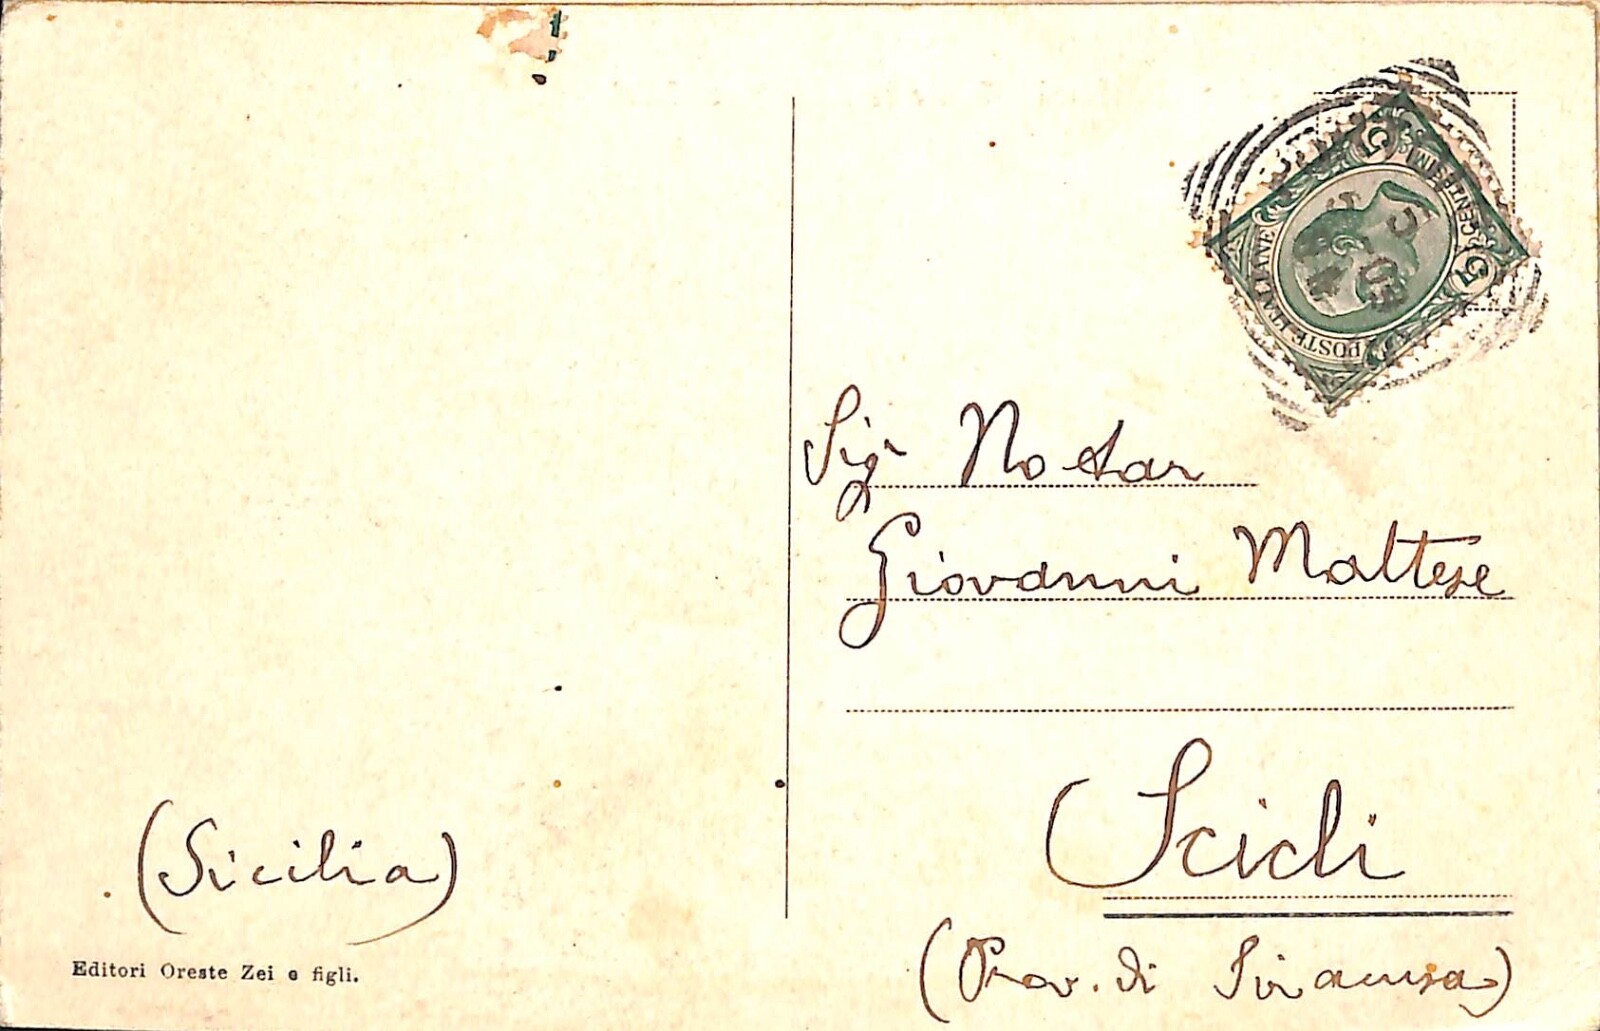 POSTE ITALIANE
CENTESIMI
5 5
Sigr Notar
Giovanni Maltese
Scicli
(Prov. di Siracusa)
(Sicilia)
Editori Oreste Zei e figli.